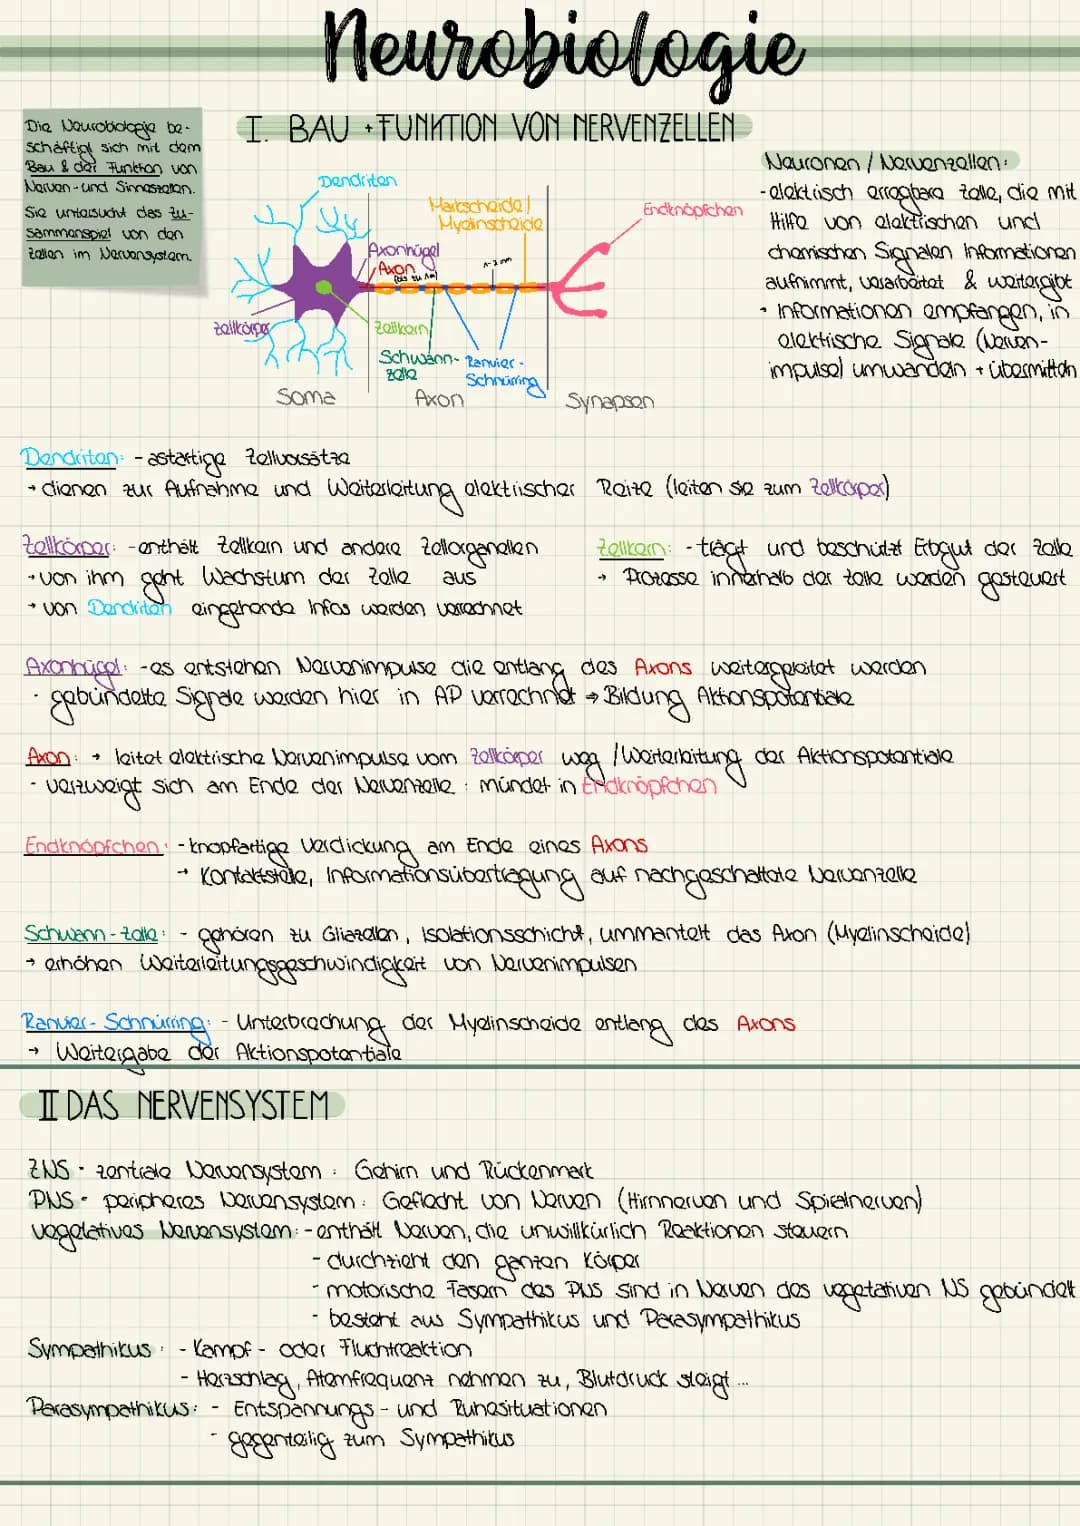 Neurobiologie
Die Neurobiologie be-
schäftigt sich mit dem
Bau & der Funktion von
Nerven- und Sinneszellen.
Sie untersucht das Zu-
sammenspiel von den
Zellen im Nervensystem.
I. BAU + FUNKTION VON NERVENZELLEN
Dendriten
Markscheide/
Myelinscheide
Endknöpfchen
Axonhügel
Axon
(bis zu 1m)
1-2 mm
Zellkörper
Zellkern
Schwann-
zelle
Ranvier-
Schnürring
Soma
Axon
Synapsen
Neuronen / Nervenzellen:
- elektrisch erregbare Zelle, die mit
Hilfe von elektrischen und
chemischen Signalen Informationen
aufnimmt, verarbeitet & weitergibt
- Informationen empfangen, in
elektische Signale (Nerven-
impulse) umwandeln + übermitteln
Dendriten: - astartige Zellvorsätze
→ dienen zur Aufnahme und Weiterleitung elektrischer Reize (leiten sie zum Zellkörper)
Zellkörper: - enthält Zellkern und andere Zellorganellen
→ von ihm geht Wachstum der Zelle aus
→ von Dendriten eingehende Infos werden verrechnet
Zellkern: - trägt und beschützt Erbgut der Zelle
→ Prozesse innerhalb der Zelle werden gesteuert
Axonhügel: - es entstehen Nervenimpulse die entlang des Axons weitergeleitet werden
- gebündelte Signale werden hier in AP verrechnet → Bildung Aktionspotentiale
Axon: → leitet elektrische Nervenimpulse vom Zellkörper weg / Weiterleitung der Aktionspotentiale
- verzweigt sich am Ende der Nervenzelle : mündet in Endknöpfchen
Endknöpfchen: - knopfartige Verdickung am Ende eines Axons
→ Kontaktstelle, Informationsübertragung auf nachgeschaltete Nervenzelle
Schwann-Zelle: - gehören zu Gliazellen, Isolationsschicht, ummantelt das Axon (Myelinscheide)
→ erhöhen Weiterleitungsgeschwindigkeit von Nervenimpulsen
Ranvier-Schnürring: - Unterbrechung der Myelinscheide entlang des Axons
→ Weitergabe der Aktionspotentiale
II DAS NERVENSYSTEM
ZNS - zentrale Nervensystem : Gehirn und Rückenmark
PNS - peripheres Nervensystem : Geflecht von Nerven (Hirnnerven und Spinalnerven)
vegetatives Nervensystem: - enthält Nerven, die unwillkürlich Reaktionen steuern
- durchzieht den ganzen Körper
- motorische Fasern des PNS sind in Nerven des vegetativen NS gebündelt
- besteht aus Sympathikus und Parasympathikus
Sympathikus : - Kampf- oder Fluchtreaktion
- Herzschlag, Atemfrequenz nehmen zu, Blutdruck steigt ...
Parasympathikus: - Entspannungs- und Ruhesituationen
- gegenteilig zum Sympathikus